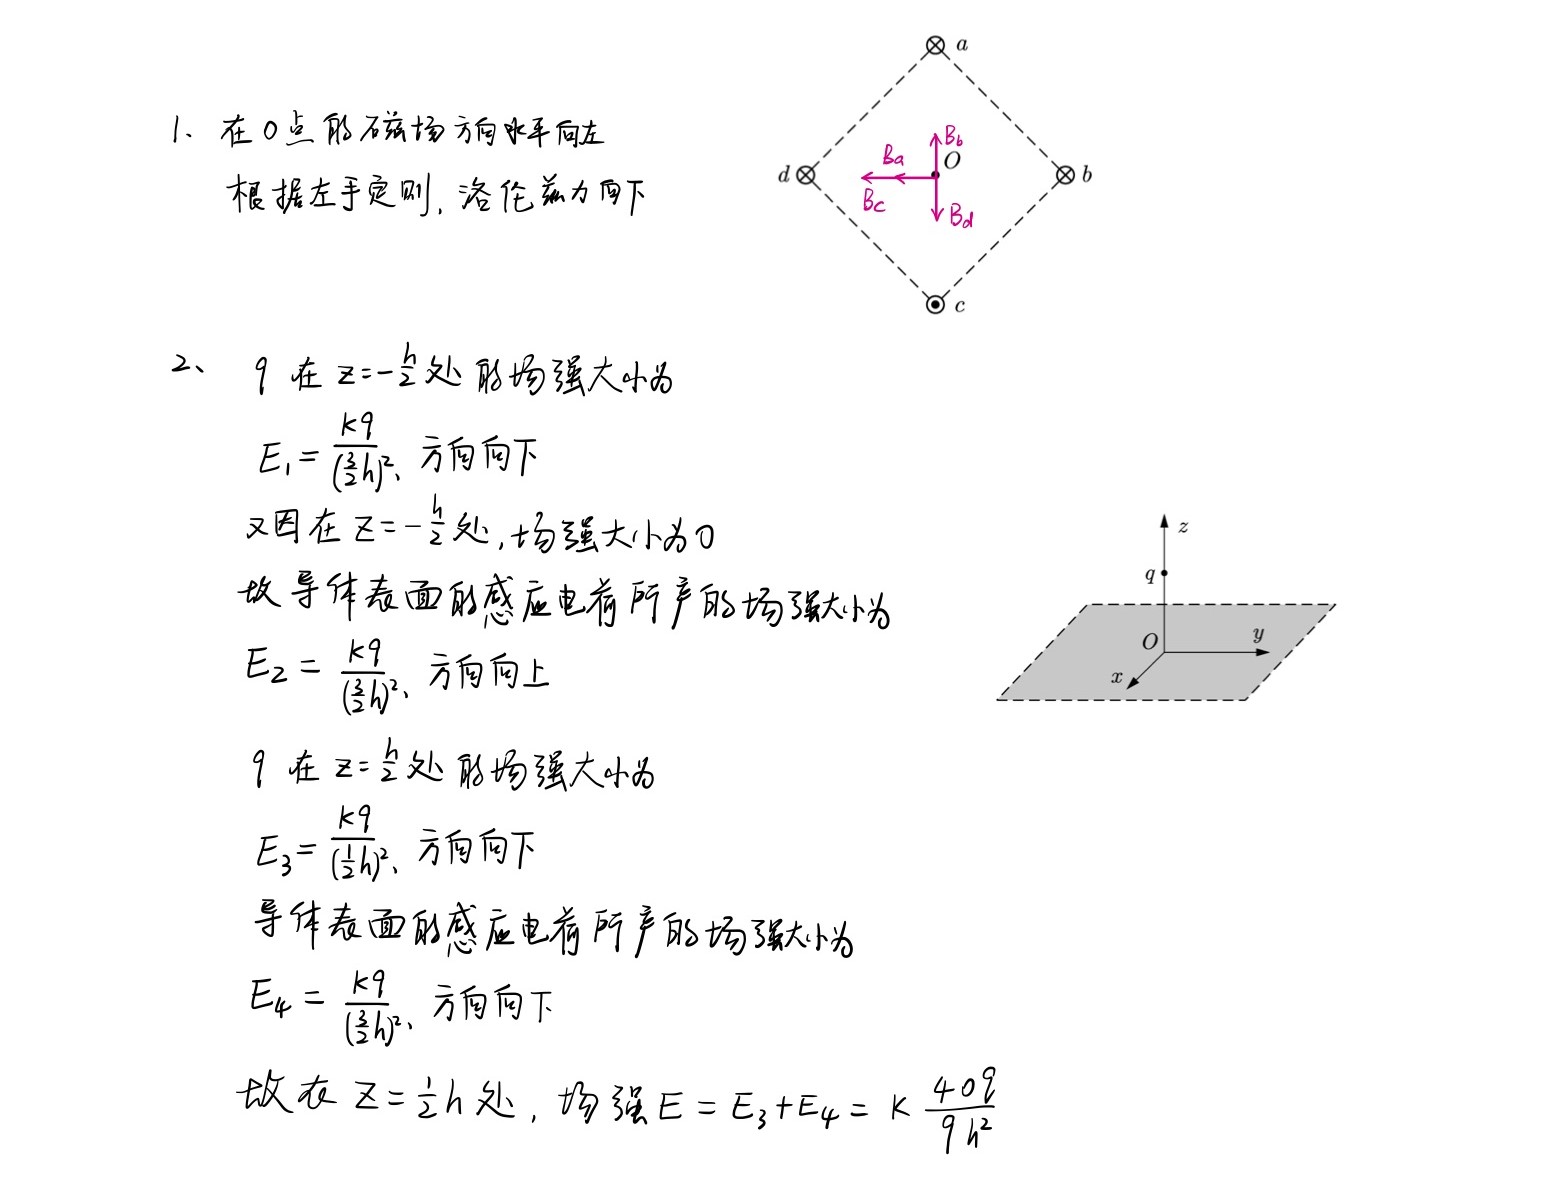 a
1、在O点的磁场方向水平向左
Bb
O
Ba
d
b
Bc
根据左手定则,洛伦兹力向下
Bd
c
2、 q在z=-h/2处的场强大小为
E₁=kq/(3/2h)²、方向向下
又因在z=-h/2处,场强大小为0
z
q
故导体表面的感应电荷所产的场强大小为
O
y
x
E₂=kq/(3/2h)²、方向向上
q在z=h/2处的场强大小为
E₃=kq/(1/2h)²、方向向下
导体表面的感应电荷所产的场强大小为
E₄=kq/(3/2h)²、方向向下
故在z=1/2h处,场强E=E₃+E₄=k 40q/9h²